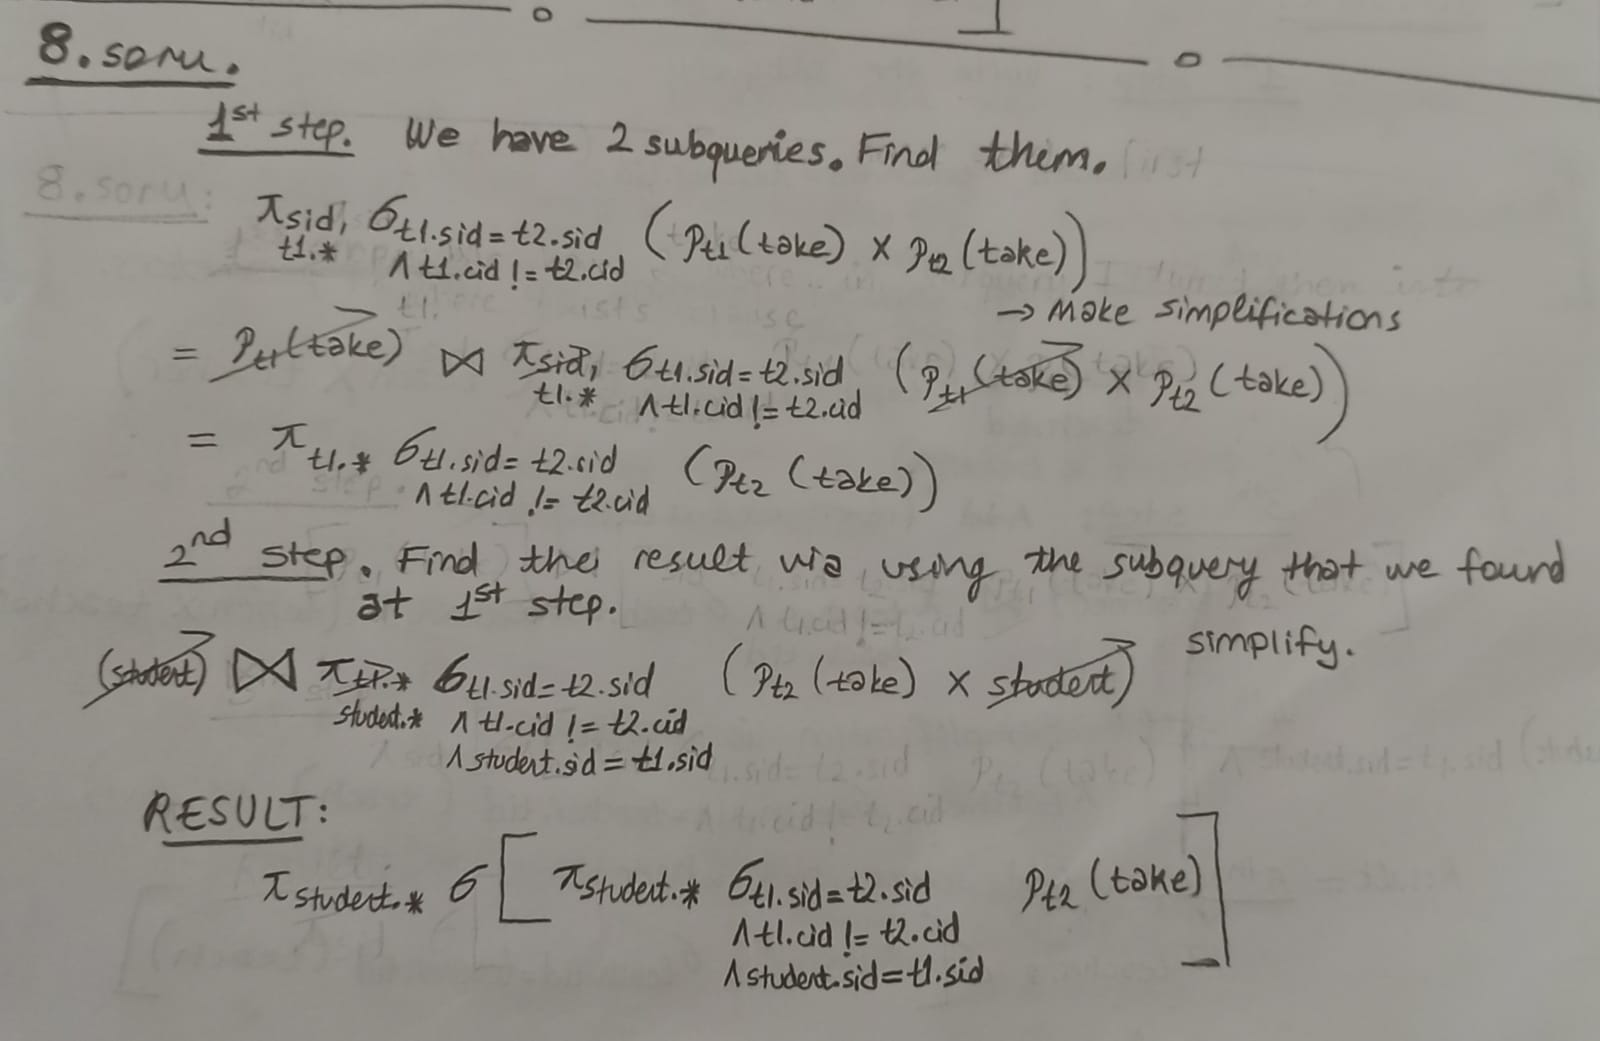 8.soru.
1st step. We have 2 subqueries. Find them.
π sid, t1.* σ t1.sid = t2.sid ∧ t1.cid != t2.cid (ρt1 (take) × ρt2 (take))
→ Make simplifications
= ρt1 (take) ⋈ π sid, t1.* σ t1.sid = t2.sid ∧ t1.cid != t2.cid (ρt1 (take) × ρt2 (take))
= π t1.* σ t1.sid = t2.sid ∧ t1.cid != t2.cid (ρt2 (take))
2nd step. Find the result via using the subquery that we found
at 1st step.
simplify.
(student) ⋈ π t1.* student.* σ t1.sid = t2.sid ∧ t1.cid != t2.cid ∧ student.sid = t1.sid (ρt2 (take) × student)
RESULT:
π student.* σ [ π student.* σ t1.sid = t2.sid ∧ t1.cid != t2.cid ∧ student.sid = t1.sid ρt2 (take) ]